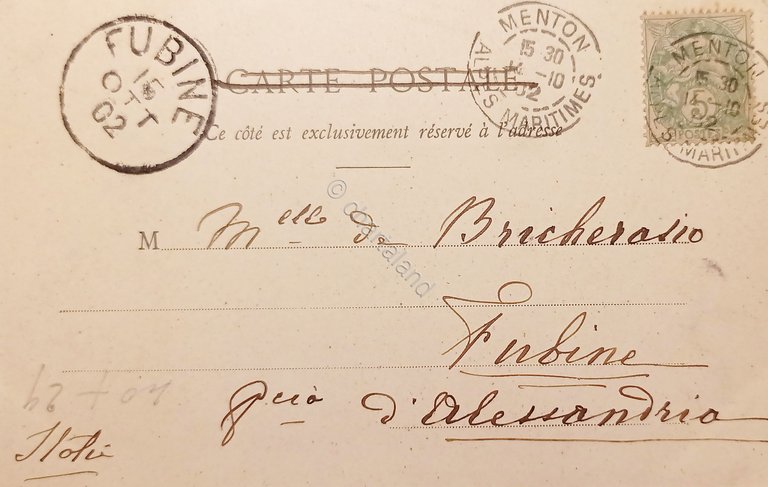 FUBINE
15
OTT
02
MENTON
15 30
-10
02
ALPES MARITIMES
MENTON
15 30
-10
02
MARITIMES
5
POSTES
CARTE POSTALE
Ce côté est exclusivement réservé à l'adresse
M Melle de Bricherasio
Fubine
pcia d'Alessandria
Italie
© delcampeland